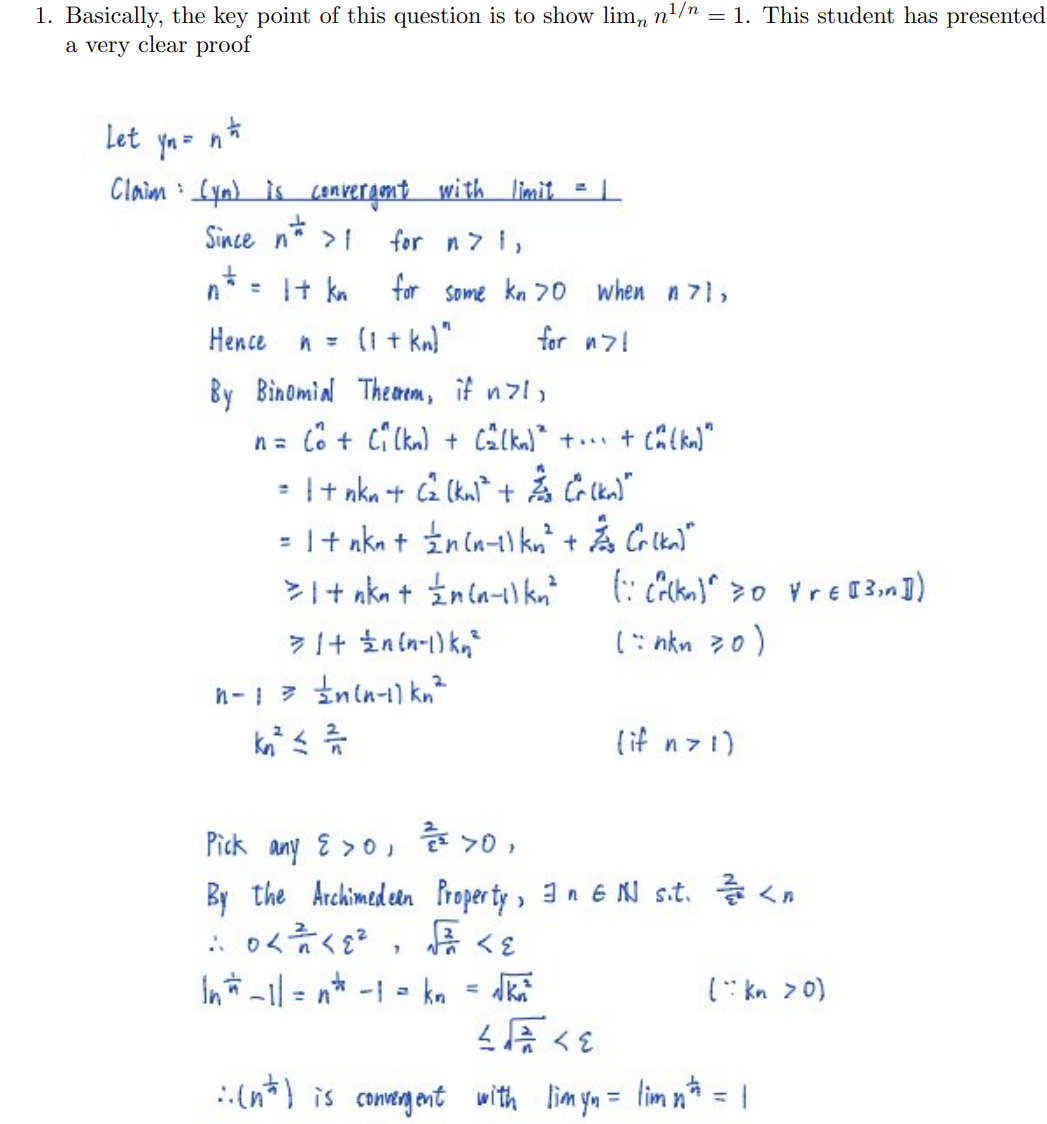 1. Basically, the key point of this question is to show limₙ n^{1/n} = 1. This student has presented
a very clear proof
Let yₙ = n^{1/n}
Claim : (yₙ) is convergent with limit = 1
Since n^{1/n} > 1 for n > 1,
n^{1/n} = 1 + kₙ for some kₙ > 0 when n > 1,
Hence n = (1 + kₙ)ⁿ for n > 1
By Binomial Theorem, if n > 1,
n = C₀ⁿ + C₁ⁿ(kₙ) + C₂ⁿ(kₙ)² + ... + Cₙⁿ(kₙ)ⁿ
= 1 + nkₙ + C₂ⁿ(kₙ)² + Σ_{r=3}^{n} Cᵣⁿ(kₙ)ʳ
= 1 + nkₙ + ½n(n-1)kₙ² + Σ_{r=3}^{n} Cᵣⁿ(kₙ)ʳ
≥ 1 + nkₙ + ½n(n-1)kₙ² (∵ Cᵣⁿ(kₙ)ʳ ≥ 0 ∀ r ∈ ⟦3,n⟧)
≥ 1 + ½n(n-1)kₙ² (∵ nkₙ ≥ 0)
n - 1 ≥ ½n(n-1)kₙ²
kₙ² ≤ 2/n (if n > 1)
Pick any ε > 0, 2/ε² > 0,
By the Archimedeen Property, ∃ n ∈ ℕ s.t. 2/ε² < n
∴ 0 < 2/n < ε², √(2/n) < ε
|n^{1/n} - 1| = n^{1/n} - 1 = kₙ = √(kₙ²) (∵ kₙ > 0)
≤ √(2/n) < ε
∴ (n^{1/n}) is convergent with lim yₙ = lim n^{1/n} = 1